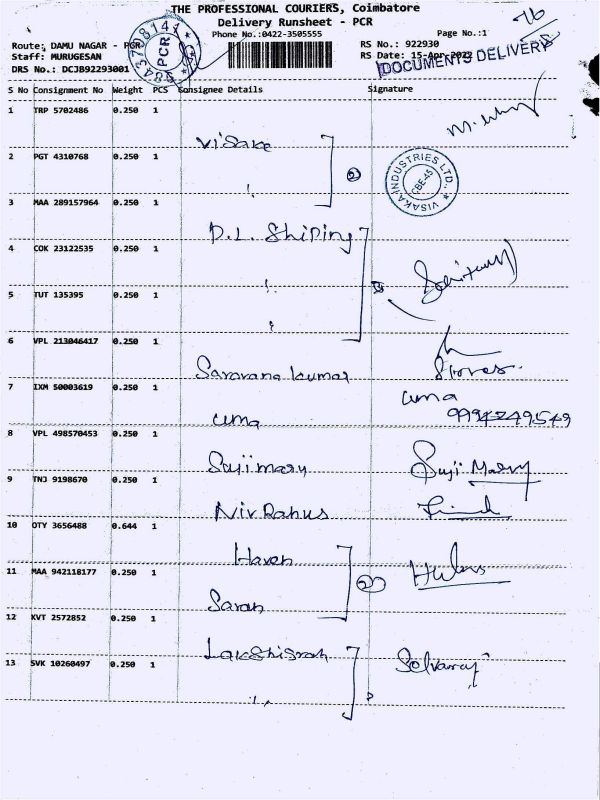 THE PROFESSIONAL COURIERS, Coimbatore
Delivery Runsheet - PCR
76
Phone No.:0422-3505555
Page No.:1
Route: DAMU NAGAR - PCR
RS No.: 922930
Staff: MURUGESAN
RS Date: 15-Apr-2022
DRS No.: DCJB92293001
9843708141
PCR
DOCUMENTS DELIVERY
S No Consignment No Weight PCS Consignee Details Signature
1 TRP 5702486 0.250 1
Visaka
2 PGT 4310768 0.250 1
2
VISAKA INDUSTRIES LTD.,
CBE-45
3 MAA 289157964 0.250 1
D.L. Shiping
4 COK 23122535 0.250 1
5 TUT 135395 0.250 1
6 VPL 213046417 0.250 1
Saravana kumar
Stores.
7 IXM 50003619 0.250 1
uma uma
9994249549
8 VPL 498570453 0.250 1
Sujimary Suji Mary
9 TNJ 9198670 0.250 1
10 OTY 3656488 0.644 1
Haven
11 MAA 942118177 0.250 1
2
Saran
12 KVT 2572852 0.250 1
Selvaraj
13 SVK 10260497 0.250 1